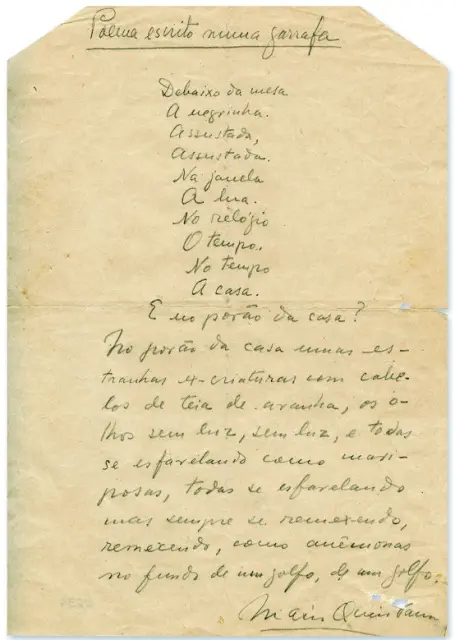 Poema escrito numa garrafa
Debaixo da mesa
A negrinha.
Assustada,
Assustada.
Na janela
A lua.
No relógio
O tempo.
No tempo
A casa.
E no porão da casa?
No porão da casa umas es-
tranhas ex-criaturas com cabe-
los de teia de aranha, os o-
lhos sem luz, sem luz, e todas
se esfarelando como mari-
posas, todas se esfarelando
mas sempre se remexendo,
remexendo, como anêmonas
no fundo de um golfo, de um golfo.
Mario Quintana